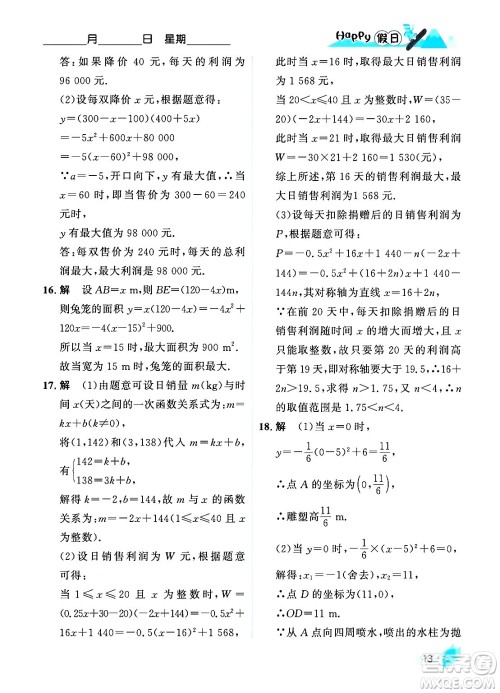 月 日 星期
Happy 假日
答:如果降价 40 元,每天的利润为
96 000 元.
(2)设每双降价 x 元,根据题意得:
y=(300-x-100)(400+5x)
=-5x²+600x+80 000
=-5(x-60)²+98 000,
∵a=-5,开口向下,y 有最大值,
∴当 x=60,即当售价为 300-60=240
元时,
y 有最大值为 98 000 元.
答:每双售价为 240 元时,每天的总利
润最大,最大利润是 98 000 元.
16.解 设 AB=x m,则 BE=(120-4x)m,
则兔笼的面积 y=(120-4x)x=-4x²+
120x=-4(x-15)²+900.
所以当 x=15 时,y最大值=900 m².
故当宽为 15 m 时,兔笼的面积最大.
17.解 (1)由题意可设日销量 m(kg)与时
间 x(天)之间的一次函数关系式为:m=
kx+b(k≠0),
将(1,142)和(3,138)代入 m=kx+b,
有{142=k+b,
138=3k+b,
解得 k=-2,b=144,故 m 与 x 的函数
关系为:m=-2x+144(1≤x≤40 且 x
为整数).
(2)设日销售利润为 W 元,根据题意
可得:
当 1≤x≤20 且 x 为整数时,W=
(0.25x+30-20)(-2x+144)=-0.5(x-
16)²+1 568,
此时当 x=16 时,取得最大日销售利润
为 1 568 元,
当 20<x≤40 且 x 为整数时,W=(35-
20)(-2x+144)=-30x+2 160,
此时当 x=21 时,取得最大日销售利润
W=-30×21+2 160=1 530(元),
综上所述,第 16 天的销售利润最大,最
大日销售利润为 1 568 元.
(3)设每天扣除捐赠后的日销售利润为
P,根据题意可得:
P=-0.5x²+16x+1 440-n(-2x+144)=
-0.5x²+(16+2n)x+1 440-144n,
其对称轴为直线 x=16+2n,
∵在前 20 天中,每天扣除捐赠后的日
销售利润随时间 x 的增大而增大,且 x
只能取整数,故只要第 20 天的利润高
于第 19 天,即对称轴要大于 19.5,∴16+
2n>19.5,求得 n>1.75,又∵n<4,∴n
的取值范围是:1.75<n<4.
18.解 (1)当 x=0 时,
y=-1/6(0-5)²+6=11/6,
∴点 A 的坐标为(0,11/6),
∴雕塑高11/6 m.
(2)当 y=0 时,-1/6×(x-5)²+6=0,
解得:x₁=-1(舍去),x₂=11,
∴点 D 的坐标为(11,0),
∴OD=11 m.
∵从 A 点向四周喷水,喷出的水柱为抛